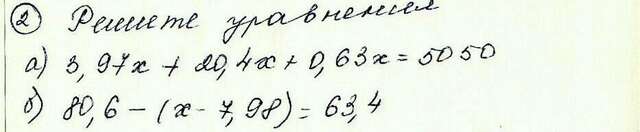 2 Решите уравнения
а) 3,97х + 20,4х + 0,63х = 5050
б) 80,6 - (х - 7,98) = 63,4